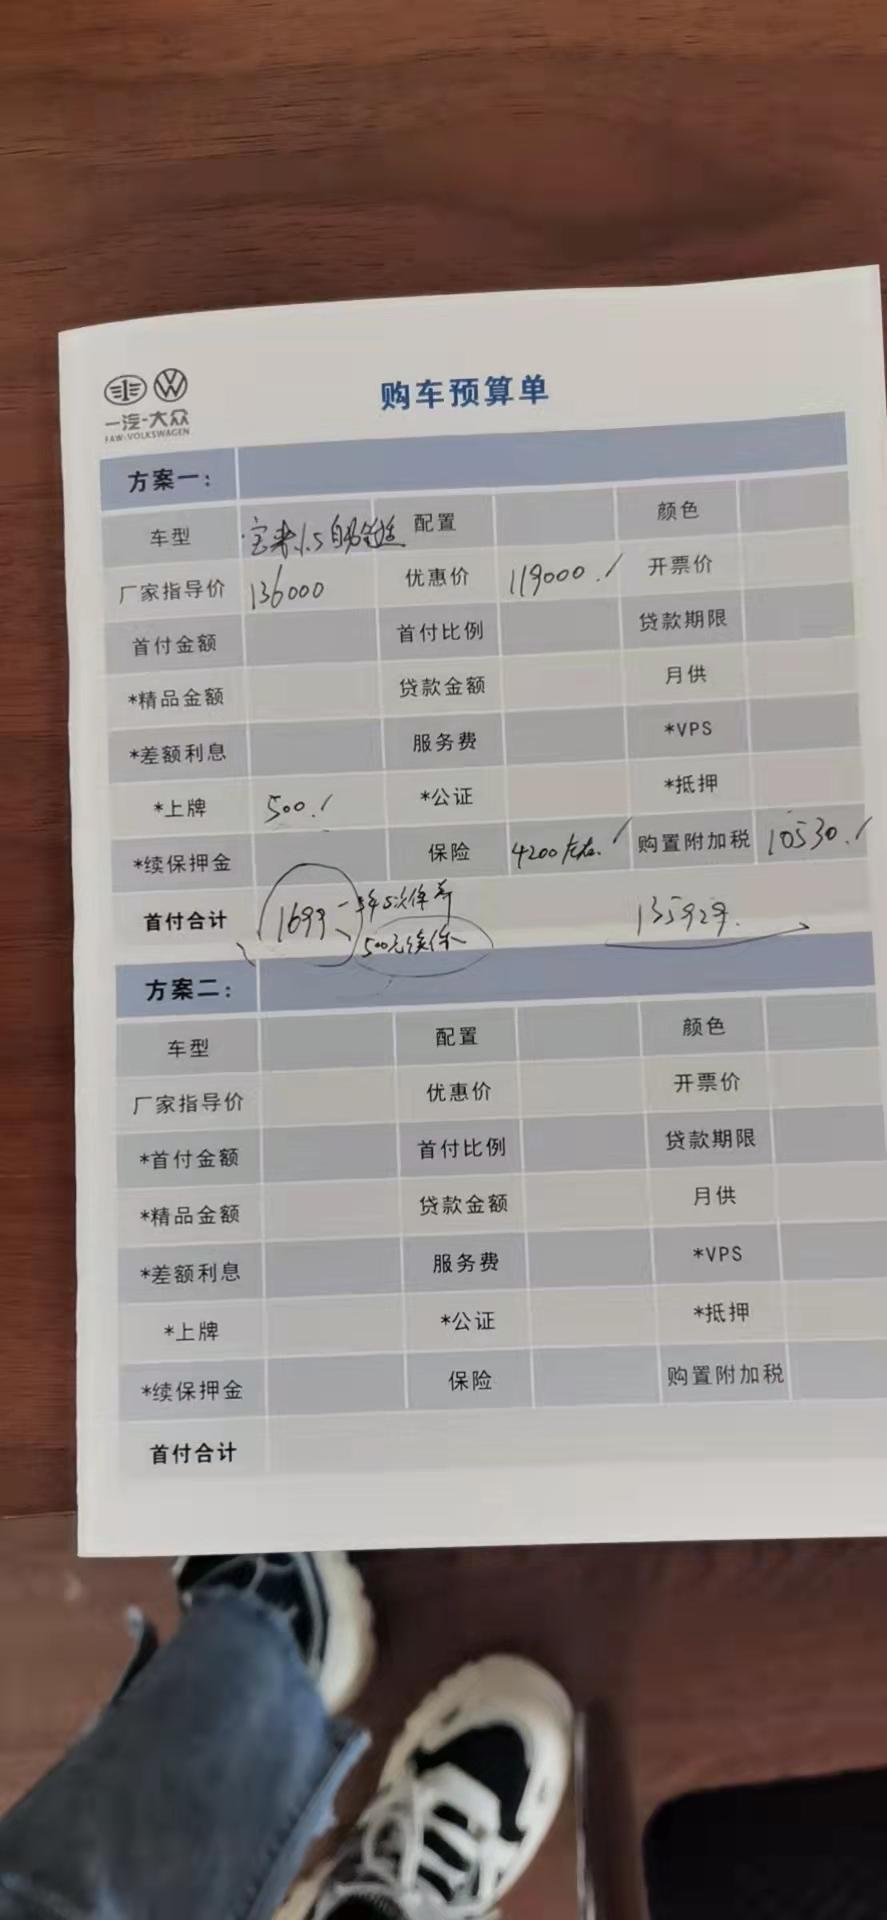 一汽-大众
FAW-VOLKSWAGEN
购车预算单
方案一：
车型 宝来1.5自动 配置 颜色
厂家指导价 136000 优惠价 119000./ 开票价
首付金额 首付比例 贷款期限
*精品金额 贷款金额 月供
*差额利息 服务费 *VPS
*上牌 500./ *公证 *抵押
*续保押金 保险 4200左右./ 购置附加税 10530./
首付合计 1699 5次保养 135929.
500元续保
方案二：
车型 配置 颜色
厂家指导价 优惠价 开票价
*首付金额 首付比例 贷款期限
*精品金额 贷款金额 月供
*差额利息 服务费 *VPS
*上牌 *公证 *抵押
*续保押金 保险 购置附加税
首付合计